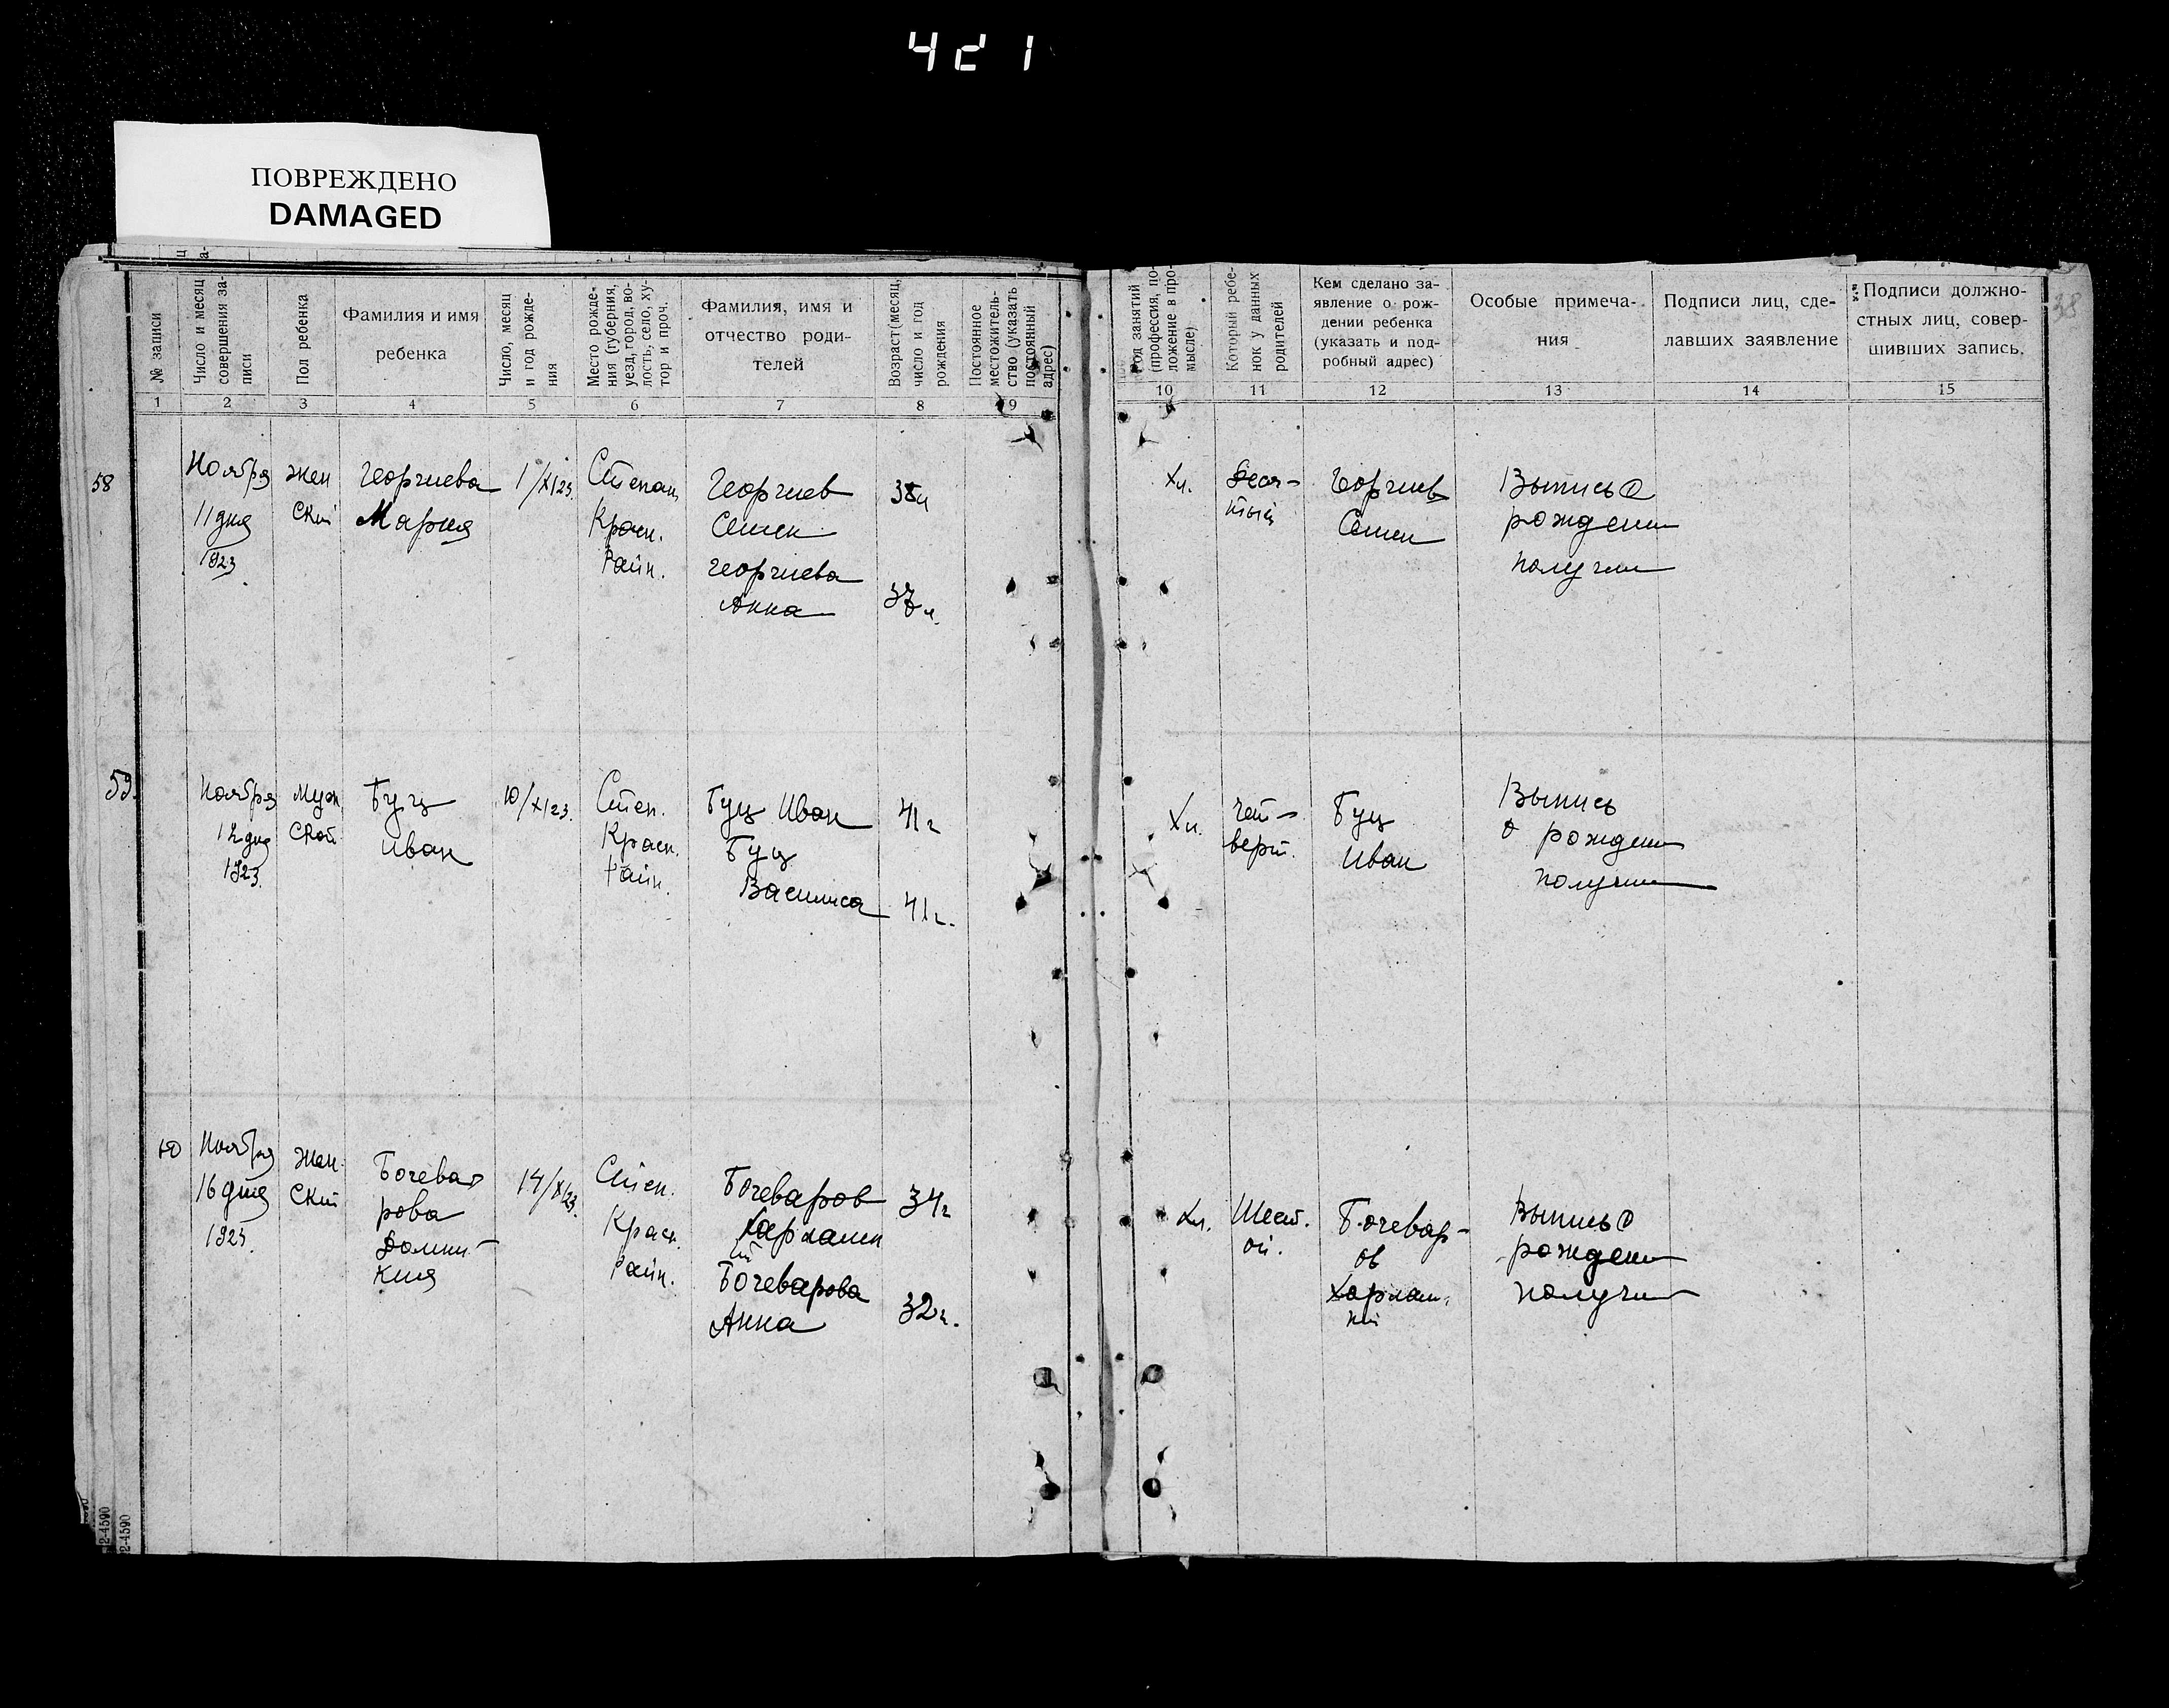 421
ПОВРЕЖДЕНО
DAMAGED
№ записи
Число и месяц
совершения за-
писи
Пол ребенка
Фамилия и имя
ребенка
Число, месяц
и год рожде-
ния
Место рожде-
ния (губерния,
уезд, город, во-
лость; село, ху-
тор и проч.
Фамилия, имя и
отчество роди-
телей
Возраст (месяц,
число и год
рождения
Постоянное
местожитель-
ство (указать
постоянный
адрес)
Род занятий
(профессия, по-
ложение в про-
мысле)
Который ребе-
нок у данных
родителей
Кем сделано за-
явление о рож-
дении ребенка
(указать и под-
робный адрес)
Особые примеча-
ния
Подписи лиц, сде-
лавших заявление
Подписи должно-
стных лиц, совер-
шивших запись.
38
1 2 3 4 5 6 7 8 9 10 11 12 13 14 15
58
Ноября
11 дня
1923
жен
ский
Георгиева
Мария
1/XI23.
Степан.
Красн.
Райн.
Георгиев
Семен
Георгиева
Анна
38л
37л.
Хл.
Деся-
тый
Георгиев
Семен
Выпись о
рождении
получил
59.
Ноября
12 дня
1923.
Муж.
ской
Буц
Иван
10/XI23.
Степ.
Красн.
Райн.
Буц Иван
Буц
Василиса
41г
41г.
Хл.
Чет-
верт.
Буц
Иван
Выпись
о рождении
получил
Ноября
16 дня
1923.
Жен.
ский
Бочева-
рова
Домни-
кия
14/XI23.
Степ.
Красн.
Райн.
Бочеваров
Харламп
ий
Бочеварова
Анна
34г
32г.
Хл.
Шест.
ой.
Бочевар-
ов
Харлам-
пий
Выпись о
рождении
получил
2-4590
22-4590